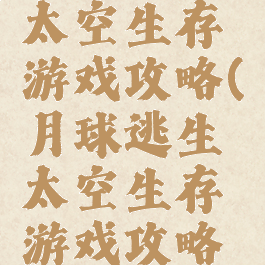 太空生存
游戏攻略(
月球逃生
太空生存
游戏攻略